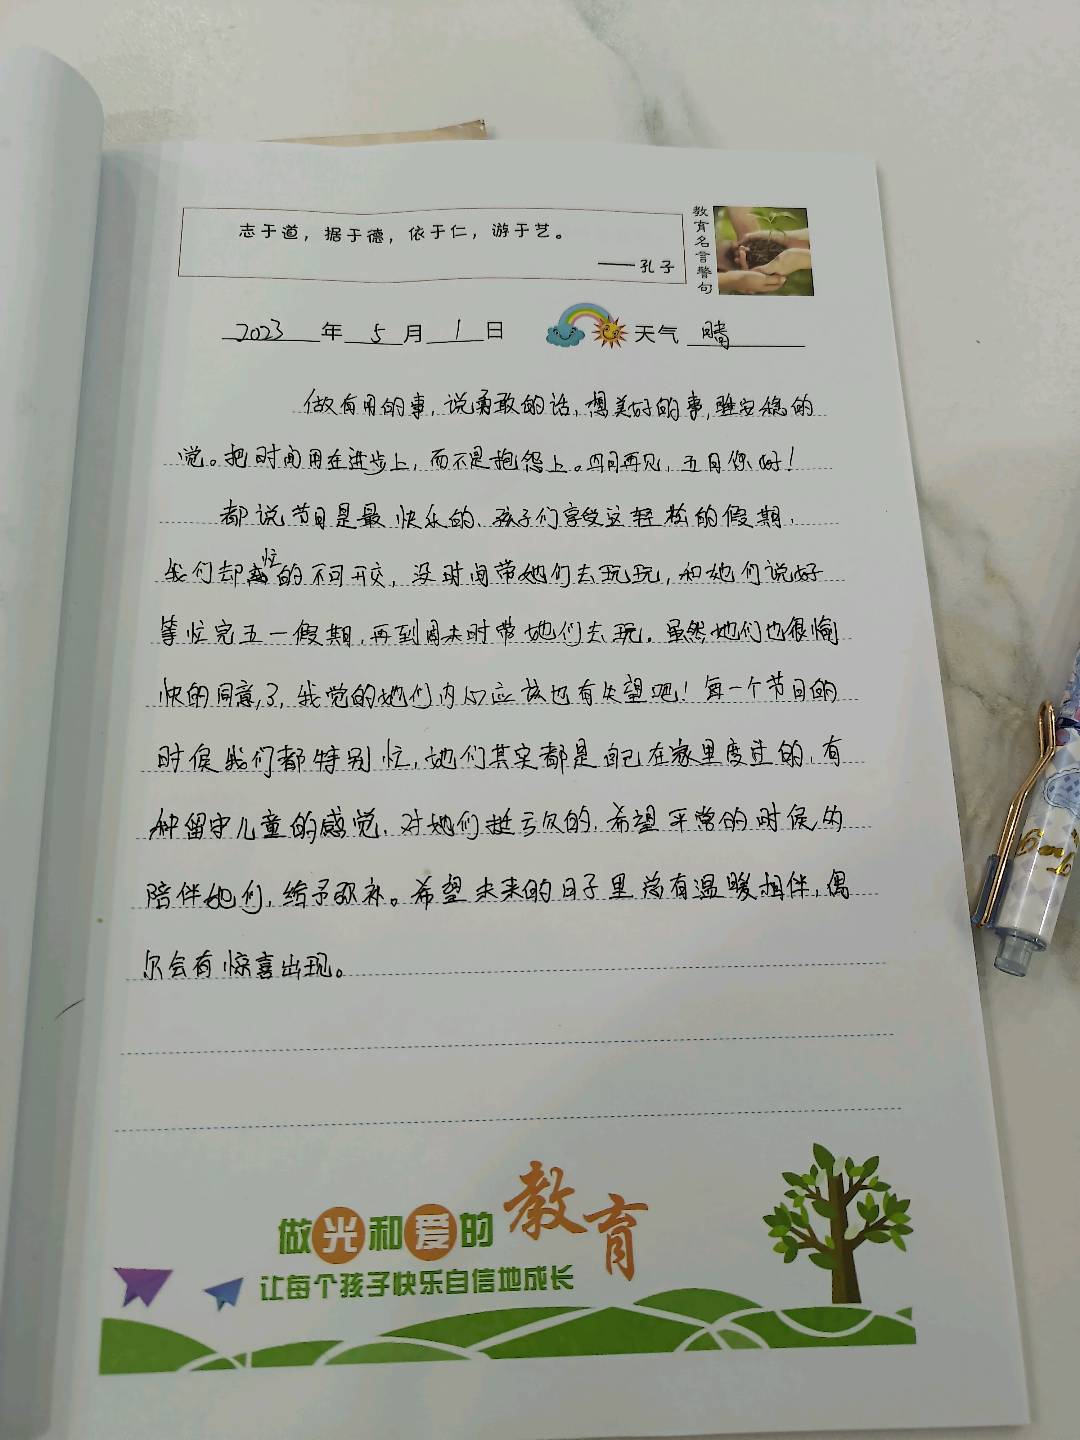 志于道，据于德，依于仁，游于艺。
——孔子
教育名言警句
2023年5月1日 天气 晴
做有用的事，说勇敢的话，想美好的事，睡安稳的
觉。把时间用在进步上，而不是抱怨上。四月再见，五月你好！
都说节日是最快乐的、孩子们享受这轻松的假期，
我们却忙的不可开交，没时间带她们去玩玩，和她们说好
等忙完五一假期，再到周末时带她们去玩。虽然她们也很愉
快的同意了，我觉的她们内心应该也有失望吧！每一个节日的
时侯我们都特别忙，她们其实都是自己在家里度过的，有
种留守儿童的感觉，对她们挺亏欠的，希望平常的时侯多
陪伴她们，给予弥补。希望未来的日子里总有温暖相伴，偶
尔会有惊喜出现。
做光和爱的教育
让每个孩子快乐自信地成长